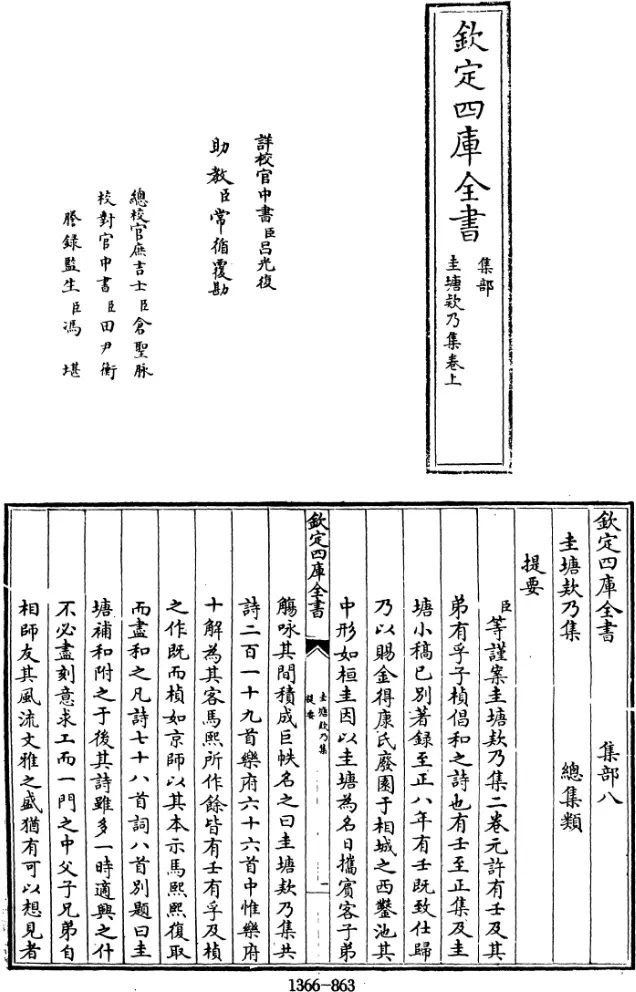 欽定四庫全書
集部
圭塘欸乃集卷上
詳校官中書臣呂光復
助教臣常循覆勘
總校官庶吉士臣倉聖脉
校對官中書臣田尹衡
謄錄監生臣馮堪
欽定四庫全書 集部八
圭塘欸乃集 總集類
提要
臣等謹案圭塘欸乃集二卷元許有壬及其
弟有孚子楨倡和之詩也有壬至正集及圭
塘小稿已別著録至正八年有壬既致仕歸
乃以賜金得康氏廢園于相城之西鑿池其
中形如桓圭因以圭塘為名日攜賓客子弟
欽定四庫全書
圭塘欸乃集
提要
一
觴咏其間積成巨帙名之曰圭塘欸乃集共
詩二百一十九首樂府六十六首中惟樂府
十解為其客馬熙所作餘皆有壬有孚及楨
之作既而楨如京師以其本示馬熙熙復取
而盡和之凡詩七十八首詞八首別題曰圭
塘補和附之于後其詩雖多一時適興之什
不必盡刻意求工而一門之中父子兄弟自
相師友其風流文雅之盛猶有可以想見者
1366-863